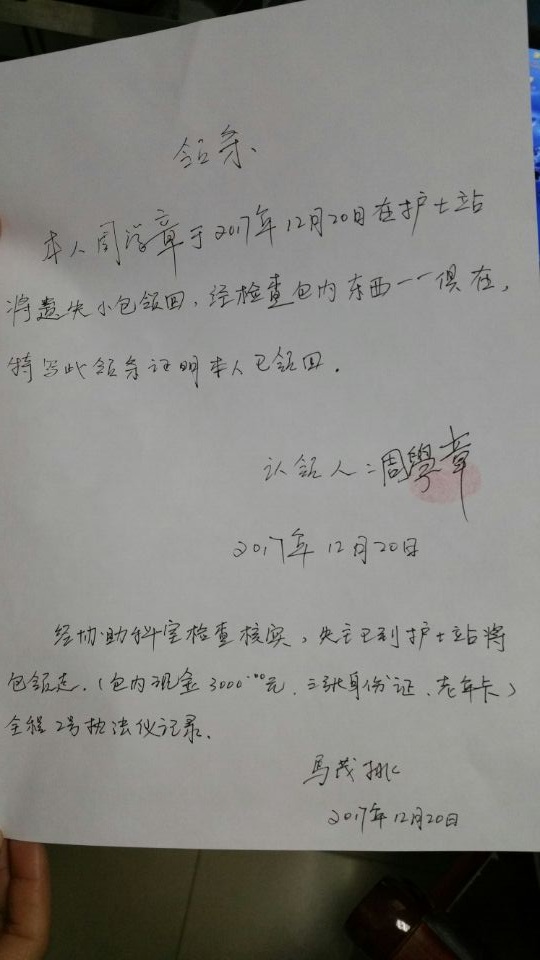 领条
本人周学章于2017年12月20日在护士站
将遗失小包领回，经检查包内东西一一俱在，
特写此领条证明本人已领回．
认领人：周學章
2017年12月20日
经协助科室检查核实，失主已到护士站将
包领走．（包内现金3000.00元、三张身份证、老年卡）
全程2号执法仪记录．
马茂
2017年12月20日